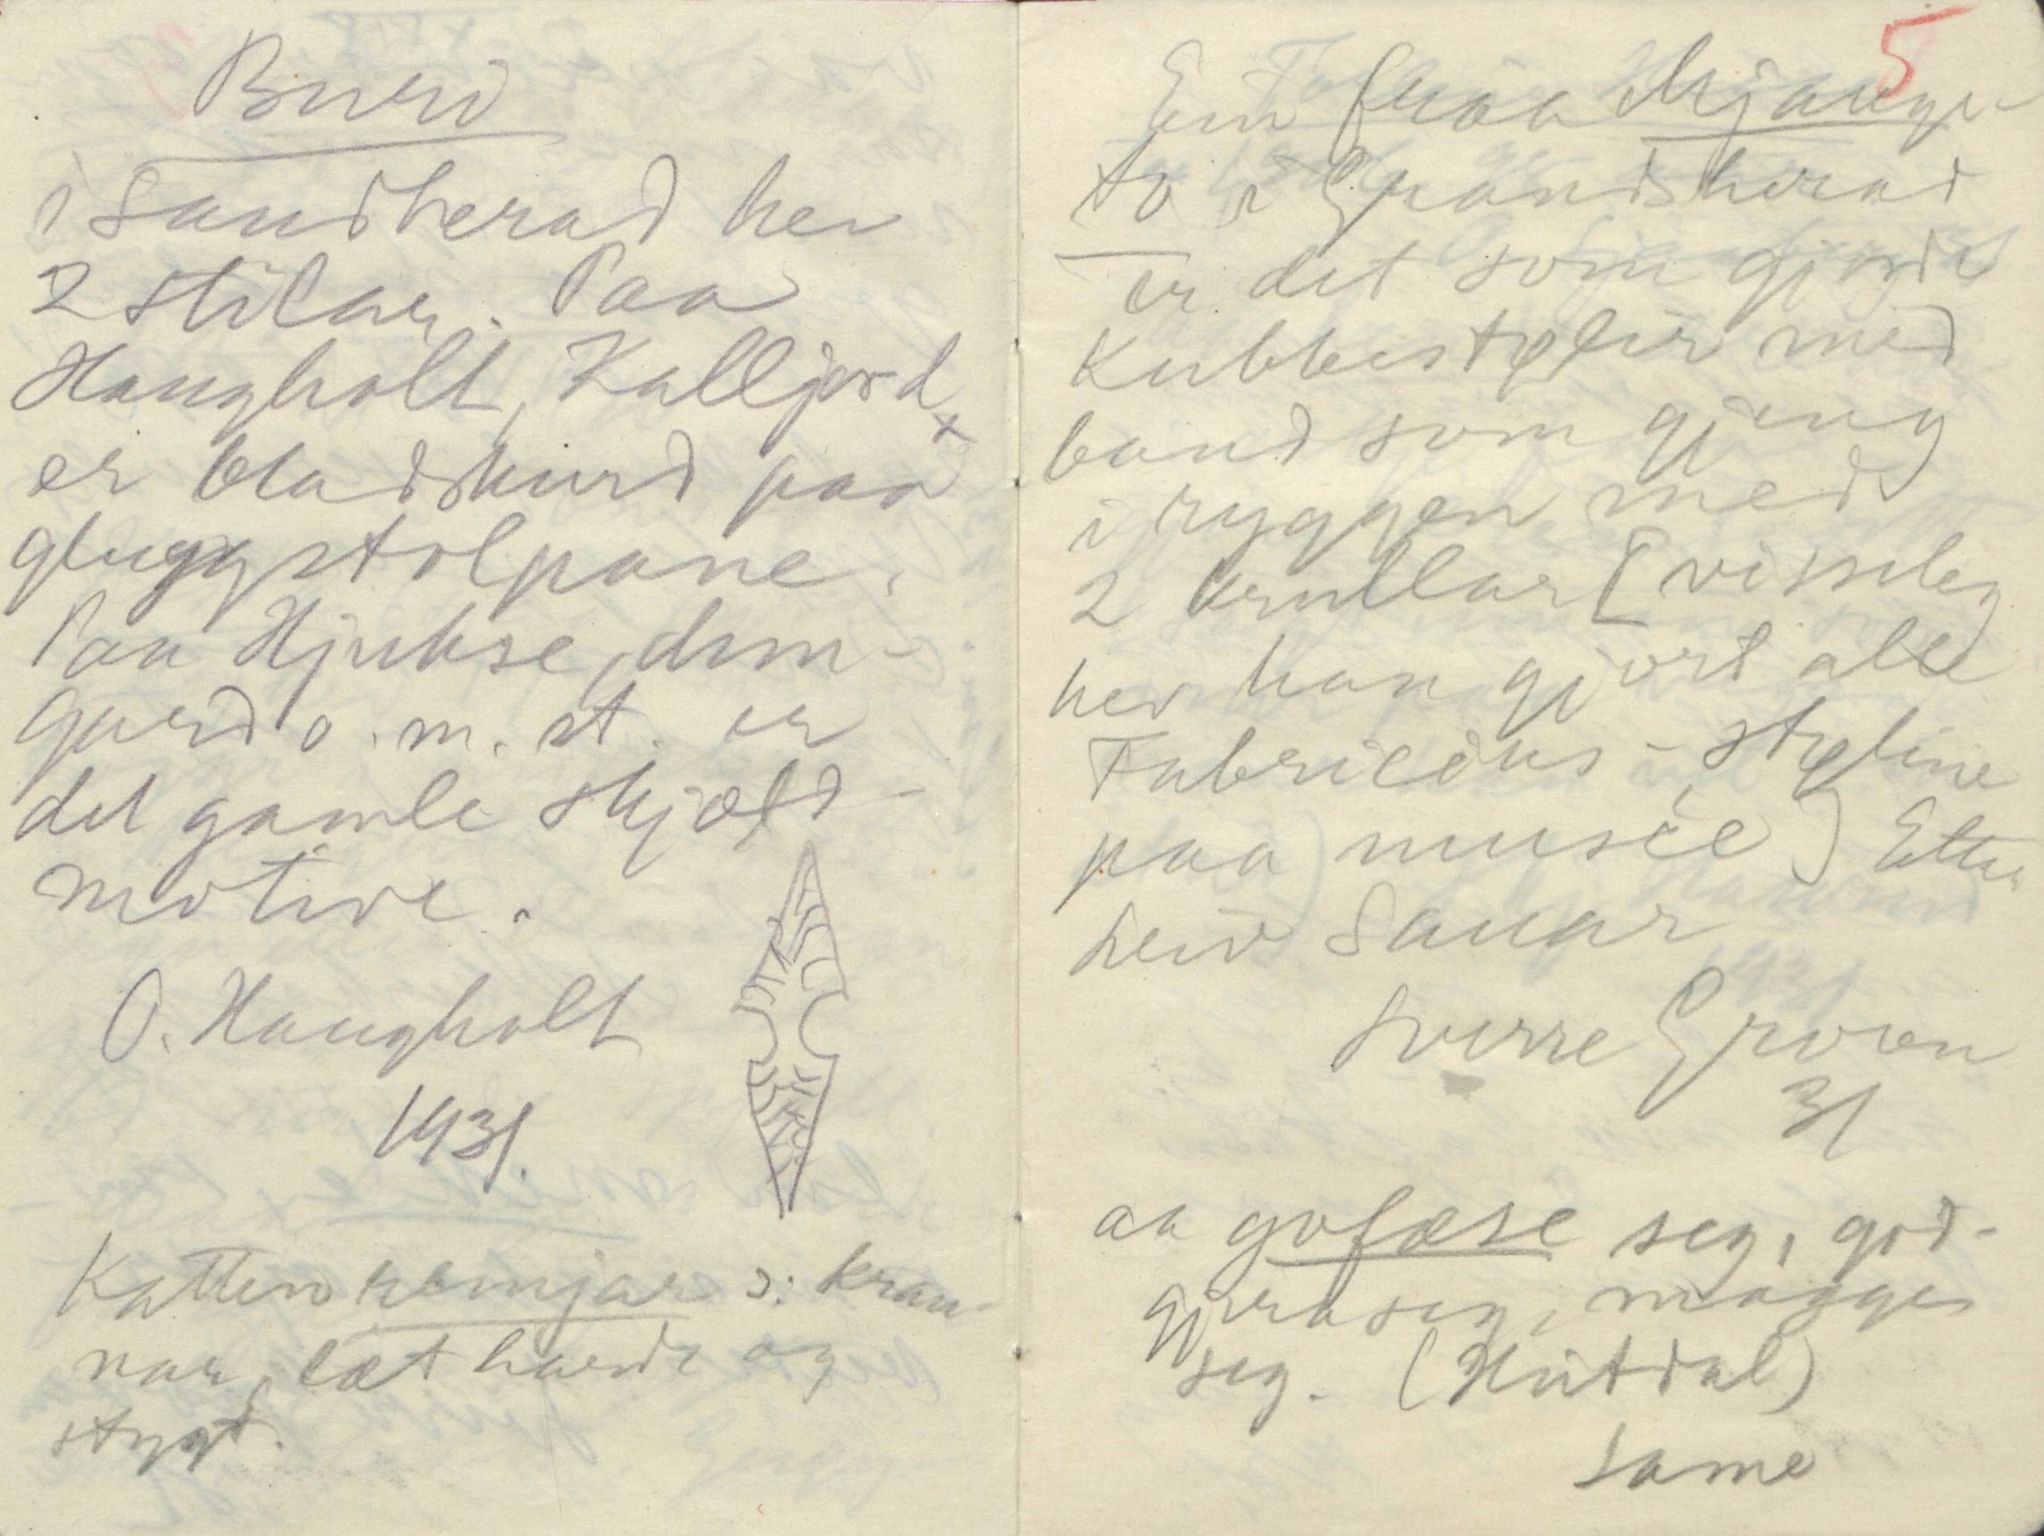 Buri
i Sandherad hev
2 stilar. Paa
Haugholt, Kalljord x
er bladskurd paa
gluggstolpane.
Paa Hjukse, dom-
gard o. m. st. er
det gamle skjæld-
motive.
O. Haugholt
1931.
Katten remjar ɔ: kran-
nar, læt hardt og
stygt.
5
Ein fraa Mjaugs-
to i Grandsherad
er det som gjorde
Kubbestolir med
band som gjeng
i ryggen med
2 krullar [visseleg
hev han gjort alle
Fabricius-stoline
paa musée) Etter
heid Sauar
Sverre Groven
31
aa gofæse seg, god-
gjera seg, magge
seg. (Hitdal)
Same